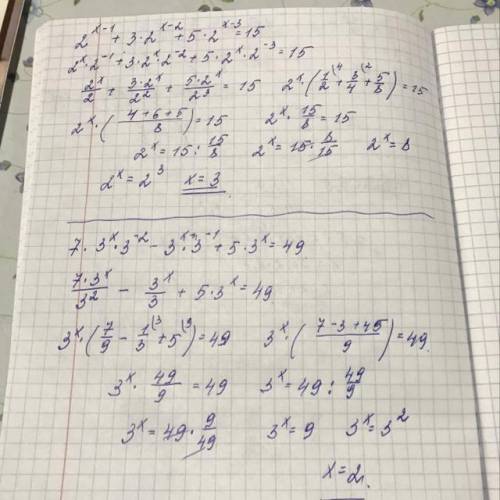 2^(x-1) + 3·2^(x-2) + 5·2^(x-3) = 15
2^x·2^(-1) + 3·2^x·2^(-2) + 5·2^x·2^(-3) = 15
2^x/2 + 3·2^x/2^2 + 5·2^x/2^3 = 15   2^x·(1/2^(4 + 3/4^(2 + 5/8) = 15
2^x·((4+6+5)/8) = 15   2^x·15/8 = 15
2^x = 15 : 15/8   2^x = 15·8/15   2^x = 8
2^x = 2^3   x = 3
7·3^x·3^(-2) - 3^x·3^(-1) + 5·3^x = 49
7·3^x/3^2 - 3^x/3 + 5·3^x = 49
3^x·(7/9 - 1/3^(3 + 5^(9) = 49   3^x·((7-3+45)/9) = 49
3^x·49/9 = 49   3^x = 49 : 49/9
3^x = 49·9/49   3^x = 9   3^x = 3^2
x = 2.